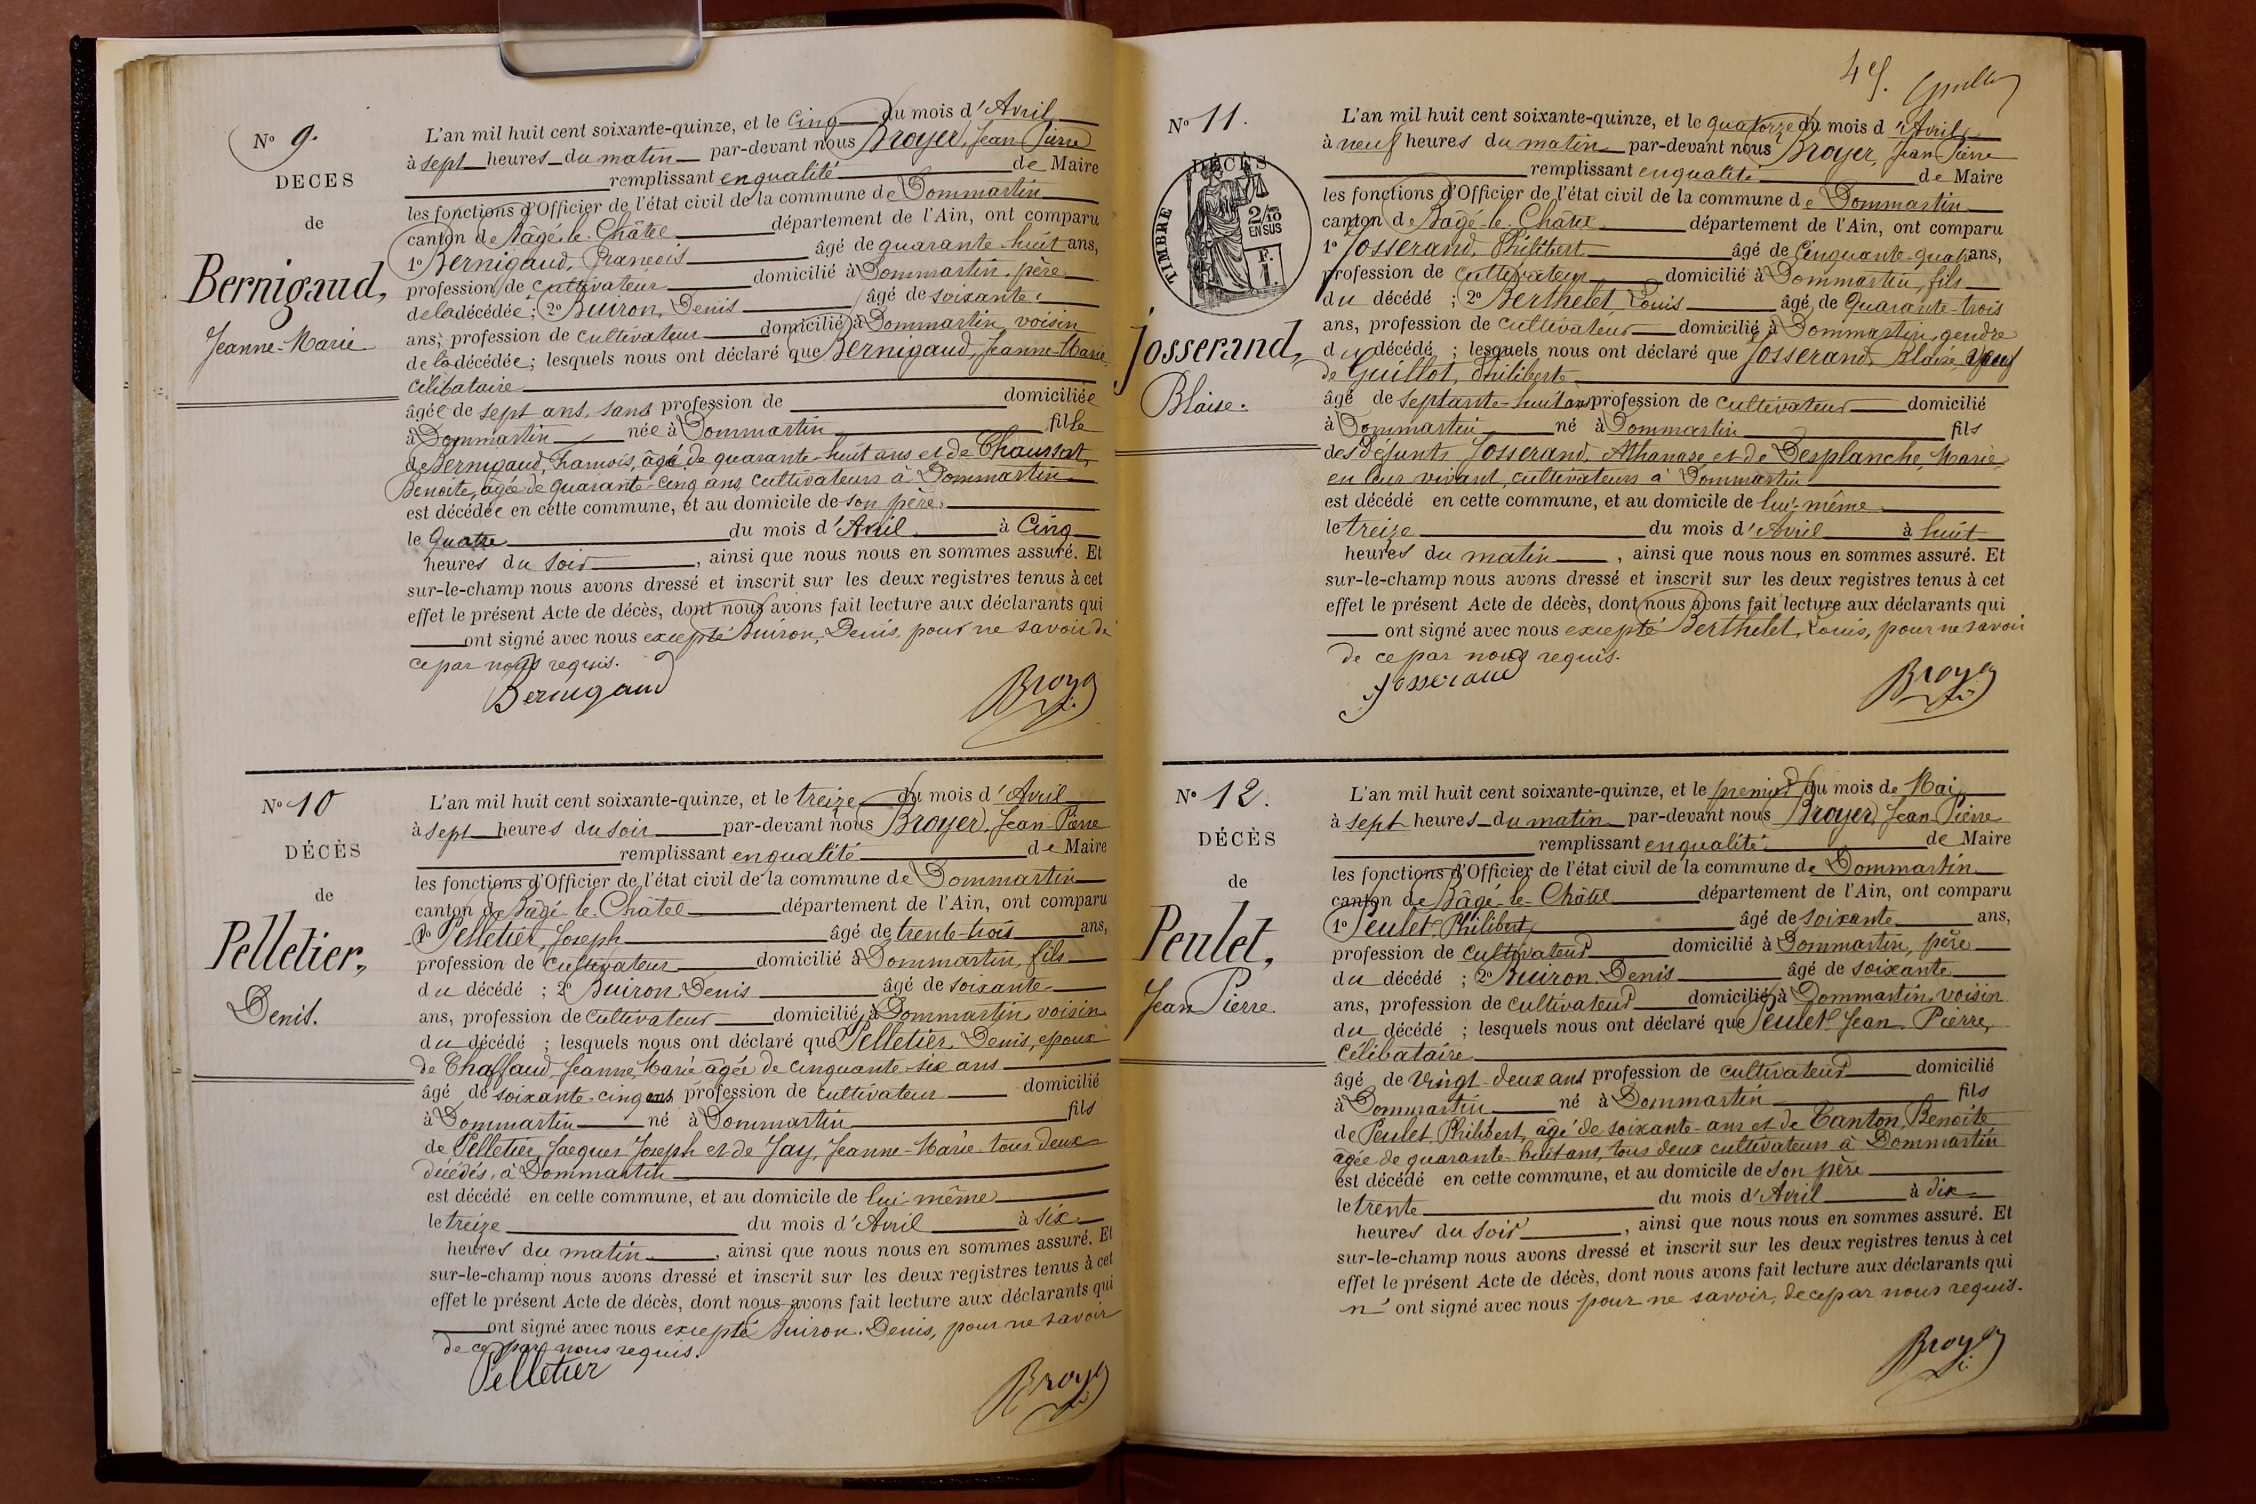 No 9.
DECES
de
Bernigaud,
Jeanne-Marie
L'an mil huit cent soixante-quinze, et le cinq du mois d'Avril
à sept heures du matin par-devant nous Broyer, Jean Pierre
remplissant en qualité de Maire
les fonctions d'Officier de l'état civil de la commune de Dommartin
canton de Bâgé-le-Châtel département de l'Ain, ont comparu
1o Bernigaud, François âgé de quarante-huit ans,
profession de cultivateur domicilié à Dommartin, père
de la décédée; 2o Buiron, Denis âgé de soixante
ans; profession de cultivateur domicilié à Dommartin voisin
de la décédée; lesquels nous ont déclaré que Bernigaud, Jeanne-Marie
célibataire
âgée de sept ans, sans profession de domiciliée
à Dommartin née à Dommartin fille
de Bernigaud, Francois, âgé de quarante-huit ans et de Chaussat,
Benoite, âgée de quarante-cinq ans, cultivateurs à Dommartin
est décédée en cette commune, et au domicile de son père
le quatre du mois d'Avril à cinq
heures du soir, ainsi que nous nous en sommes assuré. Et
sur-le-champ nous avons dressé et inscrit sur les deux registres tenus à cet
effet le présent Acte de décès, dont nous avons fait lecture aux déclarants qui
ont signé avec nous excepté Buiron, Denis, pour ne savoir de
ce par nous requis.
Bernigaud Broyer
No 10
DÉCÈS
de
Pelletier,
Denis.
L'an mil huit cent soixante-quinze, et le treize du mois d'Avril
à sept heures du soir par-devant nous Broyer, Jean-Pierre
remplissant en qualité de Maire
les fonctions d'Officier de l'état civil de la commune de Dommartin
canton de Bâgé-le-Châtel département de l'Ain, ont comparu
1o Pelletier, Joseph âgé de trente-trois ans,
profession de cultivateur domicilié à Dommartin, fils
du décédé ; 2o Buiron, Denis âgé de soixante
ans, profession de cultivateur domicilié à Dommartin voisin
du décédé ; lesquels nous ont déclaré que Pelletier, Denis, epoux
de Chaffaud, Jeanne Marie âgée de cinquante-six ans
âgé de soixante-cinq ans profession de cultivateur domicilié
à Dommartin né à Dommartin fils
de Pelletier, Jacques Joseph et de Jay, Jeanne-Marie tous deux
décédés, à Dommartin
est décédé en cette commune, et au domicile de lui-même
le treize du mois d'Avril à six
heures du matin, ainsi que nous nous en sommes assuré. Et
sur-le-champ nous avons dressé et inscrit sur les deux registres tenus à cet
effet le présent Acte de décès, dont nous avons fait lecture aux déclarants qui
ont signé avec nous excepté Buiron, Denis, pour ne savoir
de ce par nous requis.
Pelletier Broyer
No 11.
DÉCÈS
TIMBRE
2/10
EN SUS
F.
1.
Josserand,
Blaise.
L'an mil huit cent soixante-quinze, et le quatorze du mois d'Avril
à neuf heures du matin par-devant nous Broyer, Jean Pierre
remplissant en qualité de Maire
les fonctions d'Officier de l'état civil de la commune de Dommartin
canton de Bâgé-le-Châtel département de l'Ain, ont comparu
1o Josserand, Philibert âgé de cinquante-quatre ans,
profession de cultivateur domicilié à Dommartin, fils
du décédé ; 2o Berthelet, Louis âgé de quarante-trois
ans, profession de cultivateur domicilié à Dommartin, gendre
du décédé ; lesquels nous ont déclaré que Josserand, Blaise, Veuf
de Guillot, Philiberte
âgé de septante-huit ans profession de cultivateur domicilié
à Dommartin né à Dommartin fils
des défunts Josserand, Athanase et de Desplanche, Marie,
en leur vivant, cultivateurs à Dommartin
est décédé en cette commune, et au domicile de lui-même
le treize du mois d'Avril à huit
heures du matin, ainsi que nous nous en sommes assuré. Et
sur-le-champ nous avons dressé et inscrit sur les deux registres tenus à cet
effet le présent Acte de décès, dont nous avons fait lecture aux déclarants qui
ont signé avec nous excepté Berthelet, Louis, pour ne savoir
de ce par nous requis.
Josserand Broyer
No 12.
DÉCÈS
de
Peulet,
Jean Pierre.
L'an mil huit cent soixante-quinze, et le premier du mois de Mai
à sept heures du matin par-devant nous Broyer Jean Pierre
remplissant en qualité de Maire
les fonctions d'Officier de l'état civil de la commune de Dommartin
canton de Bâgé-le-Châtel département de l'Ain, ont comparu
1o Peulet Philibert, âgé de soixante ans,
profession de cultivateur domicilié à Dommartin, père
du décédé ; 2o Buiron Denis âgé de soixante
ans, profession de cultivateur domicilié à Dommartin, voisin
du décédé ; lesquels nous ont déclaré que Peulet Jean-Pierre,
célibataire
âgé de Vingt-deux ans profession de cultivateur domicilié
à Dommartin né à Dommartin fils
de Peulet, Philibert, âgé de soixante-ans et de Canton, Benoite
âgée de quarante-huit ans, tous deux cultivateurs à Dommartin
est décédé en cette commune, et au domicile de son père
le trente du mois d'Avril à dix
heures du soir, ainsi que nous nous en sommes assuré. Et
sur-le-champ nous avons dressé et inscrit sur les deux registres tenus à cet
effet le présent Acte de décès, dont nous avons fait lecture aux déclarants qui
n'ont signé avec nous pour ne savoir, de ce par nous requis.
Broyer